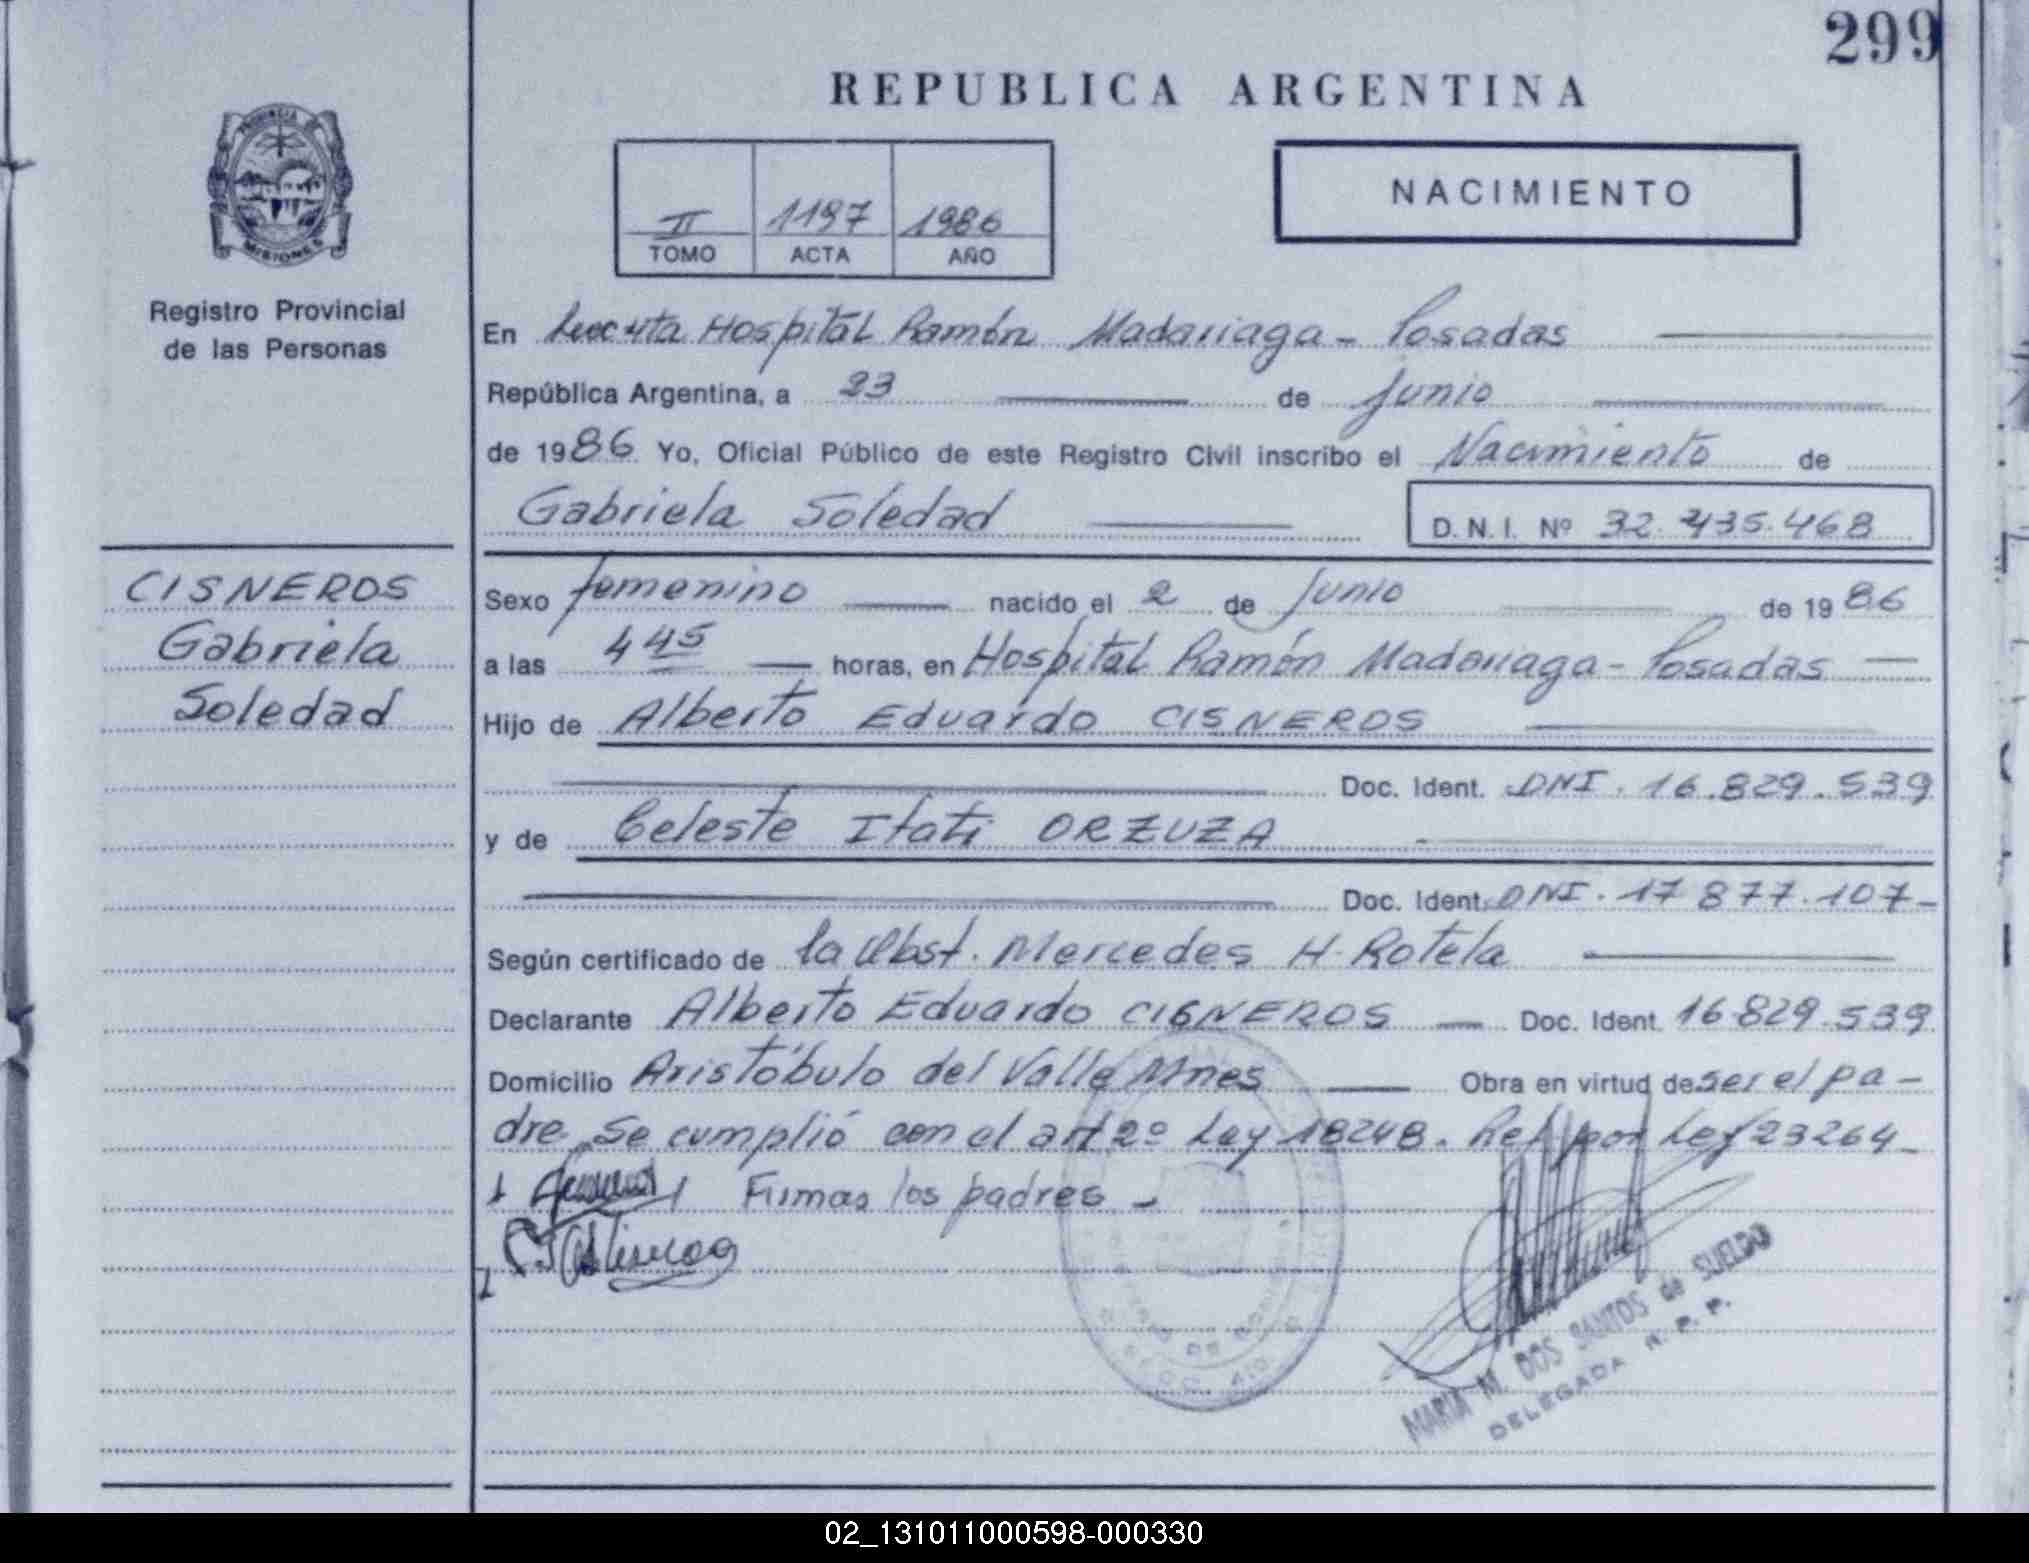 299
REPUBLICA ARGENTINA
PROVINCIA DE
MISIONES
Registro Provincial
de las Personas
II 1197 1986
TOMO ACTA AÑO
NACIMIENTO
En Hospital Ramón Madariaga - Posadas
República Argentina, a 23 de Junio
de 1986 Yo, Oficial Público de este Registro Civil inscribo el Nacimiento de
Gabriela Soledad D.N.I. Nº 32.435.468
CISNEROS
Gabriela
Soledad
Sexo femenino nacido el 2 de Junio de 1986
a las 4 45 horas, en Hospital Ramón Madariaga - Posadas
Hijo de Alberto Eduardo CISNEROS
Doc. Ident. DNI. 16.829.539
y de Celeste Itati ORZUZA
Doc. Ident. DNI. 17 877.107-
Según certificado de la Obst. Mercedes H. Rotela
Declarante Alberto Eduardo CISNEROS Doc. Ident. 16829.539
Domicilio Aristóbulo del Valle Mnes Obra en virtud de ser el pa-
dre. Se cumplió con el art 2º Ley 18248. Ref por Ley 23264-
Firmas los padres -
MARIA M. DOS SANTOS de SUELDO
DELEGADA R. P. P.
02_131011000598-000330